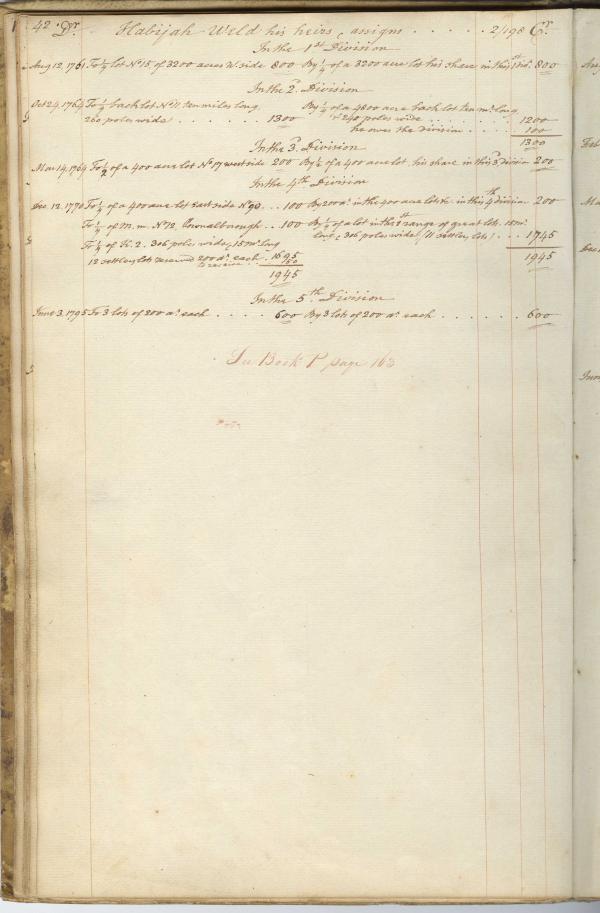 42. Dr. Habijah Weld his heirs & assigns . . . . . 2/198 Cr.
In the 1st Division
Aug 12, 1761 To ¼ lot No 15 of 3200 acres W. side 800 By ¼ of a 3200 acre lot his share in this 1st Divn. 800
In the 2d. Division
Oct 24, 1764 To ¼ back lot No 11 ten miles long By ¼ of a 4800 acre back lot ten ms. long
260 poles wide . . . . . . . 1300 & 240 poles wide . . . . . . . 1200
he owes the division . . . . 100
1300
In the 3d. Division
Mar 14, 1764 To ½ of a 400 acre lot No 17 west side 200 By ½ of a 400 acre lot his share in this 3d division 200
In the 4th Division
Dec 12, 1770 To ¼ of a 400 acre lot East side No 90 . . 100 By 200 as. in the 400 acre lots &c. in this 4th division 200
To of m. m. No 12, Pownalborough . . 100 By of a lot in the range of great lots. 15 ms.
To ¼ of K. 2. 306 poles wide, 15 ms. long long, 306 poles wide, (11 settlers lots) . . . 1745
12 settlers lots reserved 200 as. each . 1695
50
1945 1945
In the 5th Division
June 3, 1795 To 3 lots of 200 as. each . . . . . 600 By 3 lots of 200 as. each . . . . . . 600
See Book P page 163